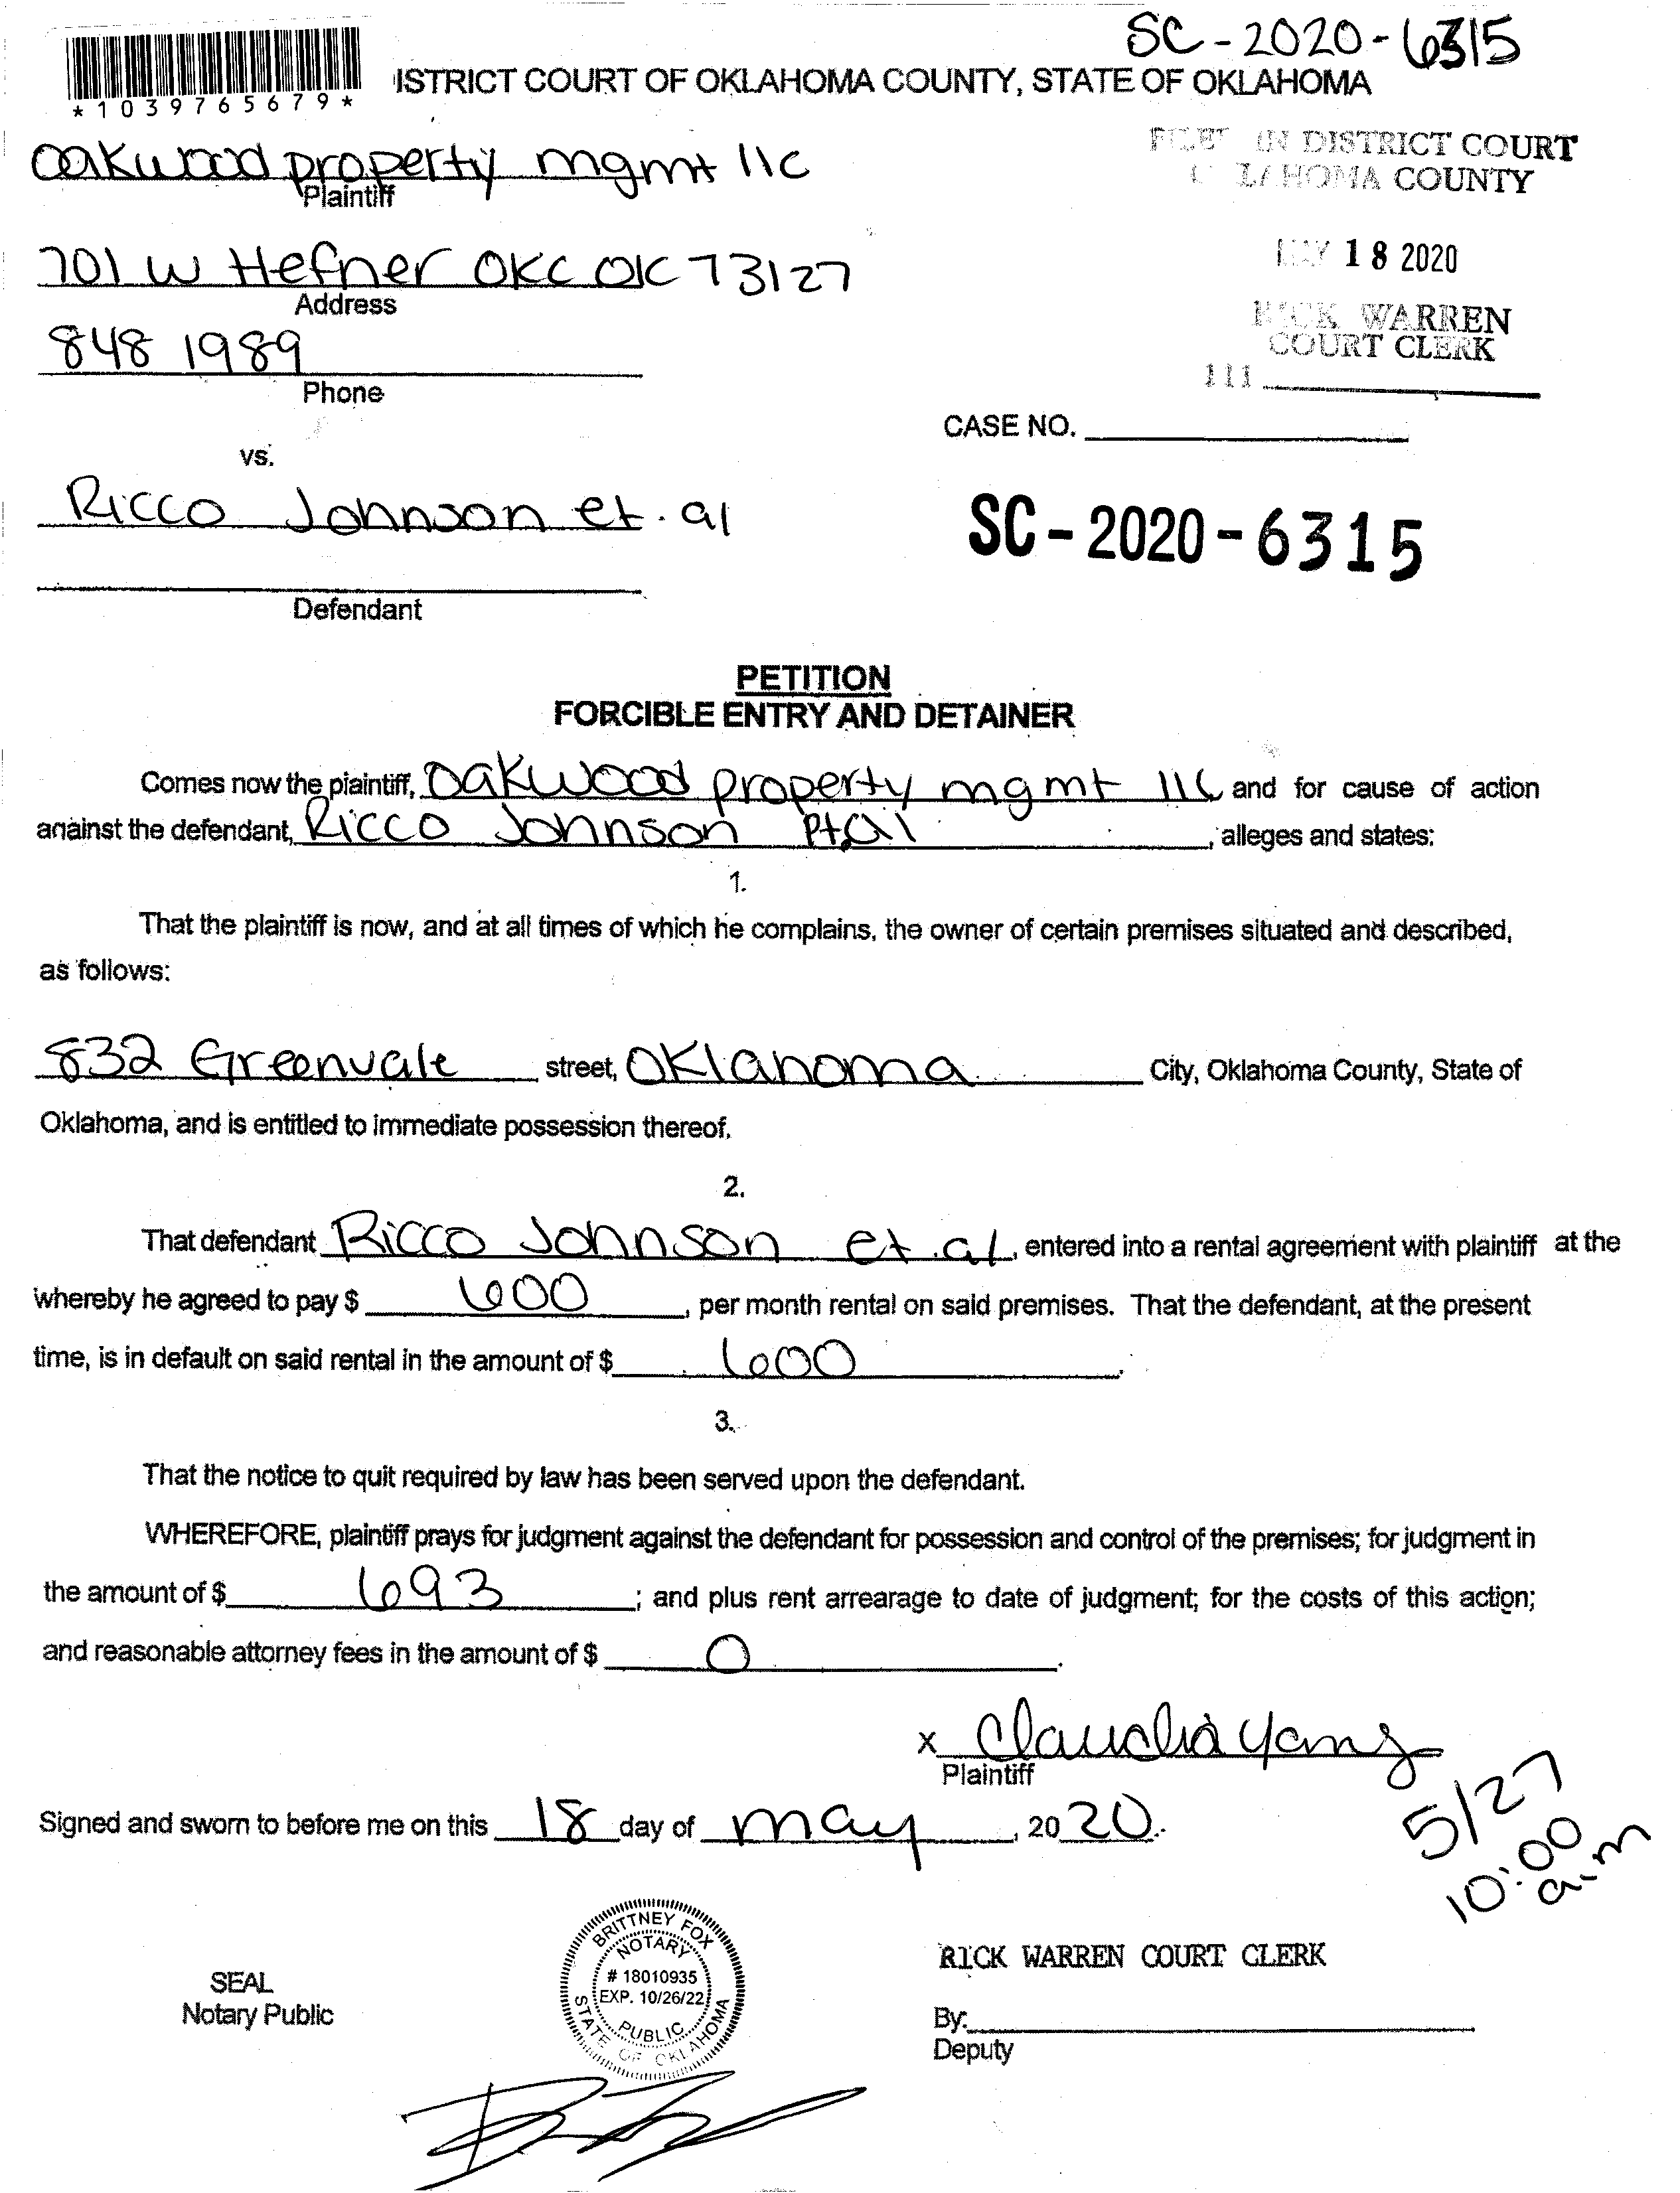 SC-2020-6315
ISTRICT COURT OF OKLAHOMA COUNTY, STATE OF OKLAHOMA
*1039765679*
Oakwood property mgmt llc
Plaintiff
FILED IN DISTRICT COURT
OKLAHOMA COUNTY
701 W Hefner OKC OK 73127
Address
MAY 18 2020
848 1989
Phone
RICK WARREN
COURT CLERK
111
CASE NO.
vs.
Ricco Johnson et. al
SC-2020-6315
Defendant
PETITION
FORCIBLE ENTRY AND DETAINER
Comes now the plaintiff, Oakwood property mgmt llc and for cause of action
against the defendant, Ricco Johnson et.al, alleges and states:
1.
That the plaintiff is now, and at all times of which he complains, the owner of certain premises situated and described,
as follows:
832 Greenvale street, Oklahoma City, Oklahoma County, State of
Oklahoma, and is entitled to immediate possession thereof.
2.
That defendant Ricco Johnson et.al, entered into a rental agreement with plaintiff at the
whereby he agreed to pay $ 600, per month rental on said premises. That the defendant, at the present
time, is in default on said rental in the amount of $ 600.
3.
That the notice to quit required by law has been served upon the defendant.
WHEREFORE, plaintiff prays for judgment against the defendant for possession and control of the premises; for judgment in
the amount of $ 693; and plus rent arrearage to date of judgment; for the costs of this action;
and reasonable attorney fees in the amount of $ 0.
x Claudia Yang
Plaintiff
Signed and sworn to before me on this 18 day of may, 2020.
5/27
10:00
a.m
BRITTNEY FOX
NOTARY
# 18010935
EXP. 10/26/22
PUBLIC
STATE OF OKLAHOMA
SEAL
Notary Public
RICK WARREN COURT CLERK
By:
Deputy